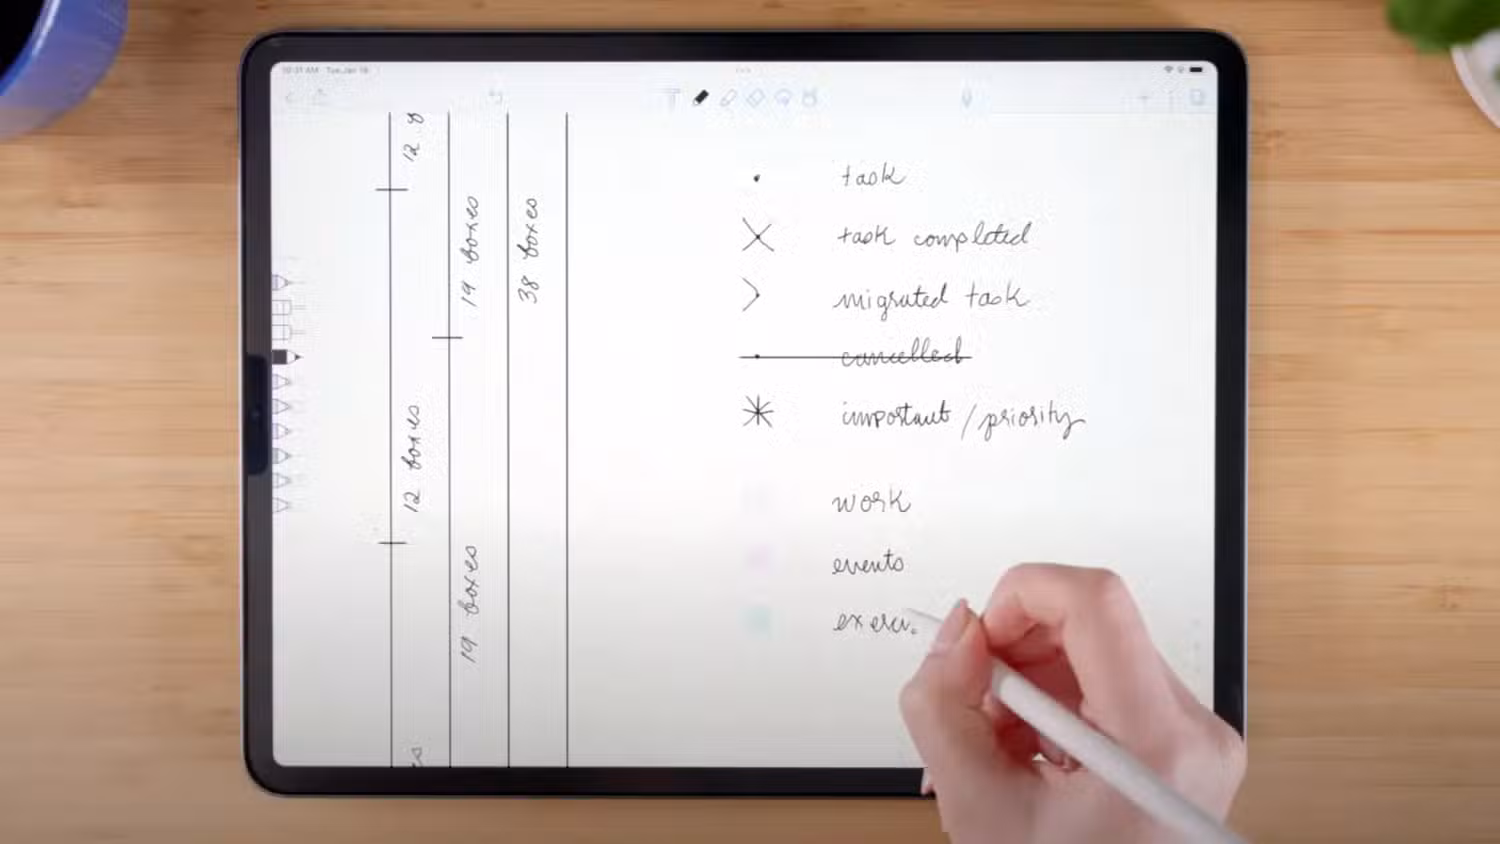 10:31 AM Tue Jan 19
12
19 boxes
38 boxes
12 boxes
19 boxes
task
task completed
migrated task
cancelled
important / priority
work
events
exerci